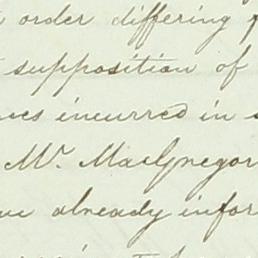 order differing
supposition of
incurred in
Mr. MacGregor
already infor